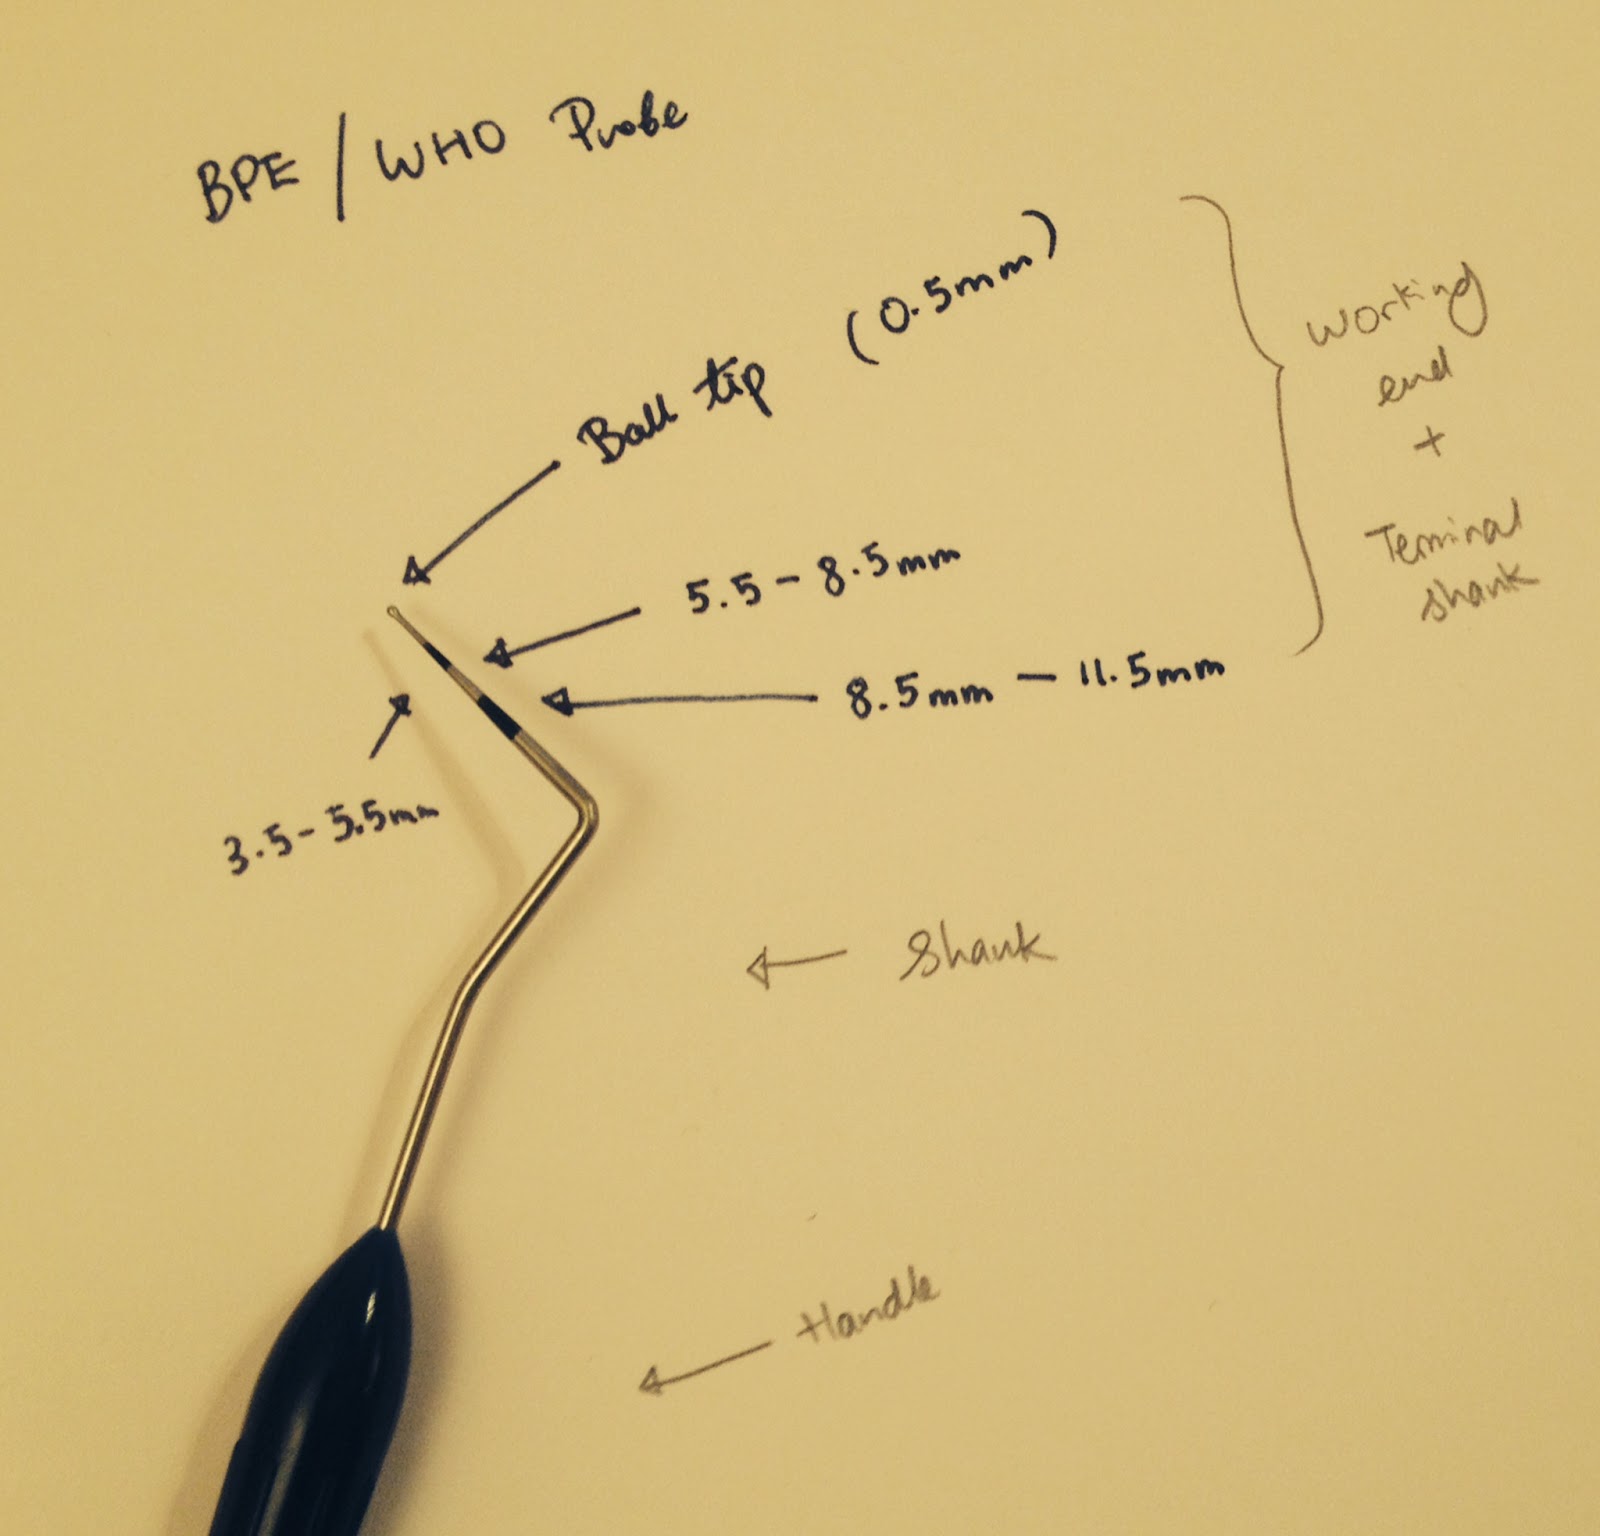 BPE / WHO Probe
Ball tip (0.5mm)
5.5 - 8.5mm
8.5mm - 11.5mm
3.5 - 5.5mm
Working
end
+
Terminal
shank
Shank
Handle